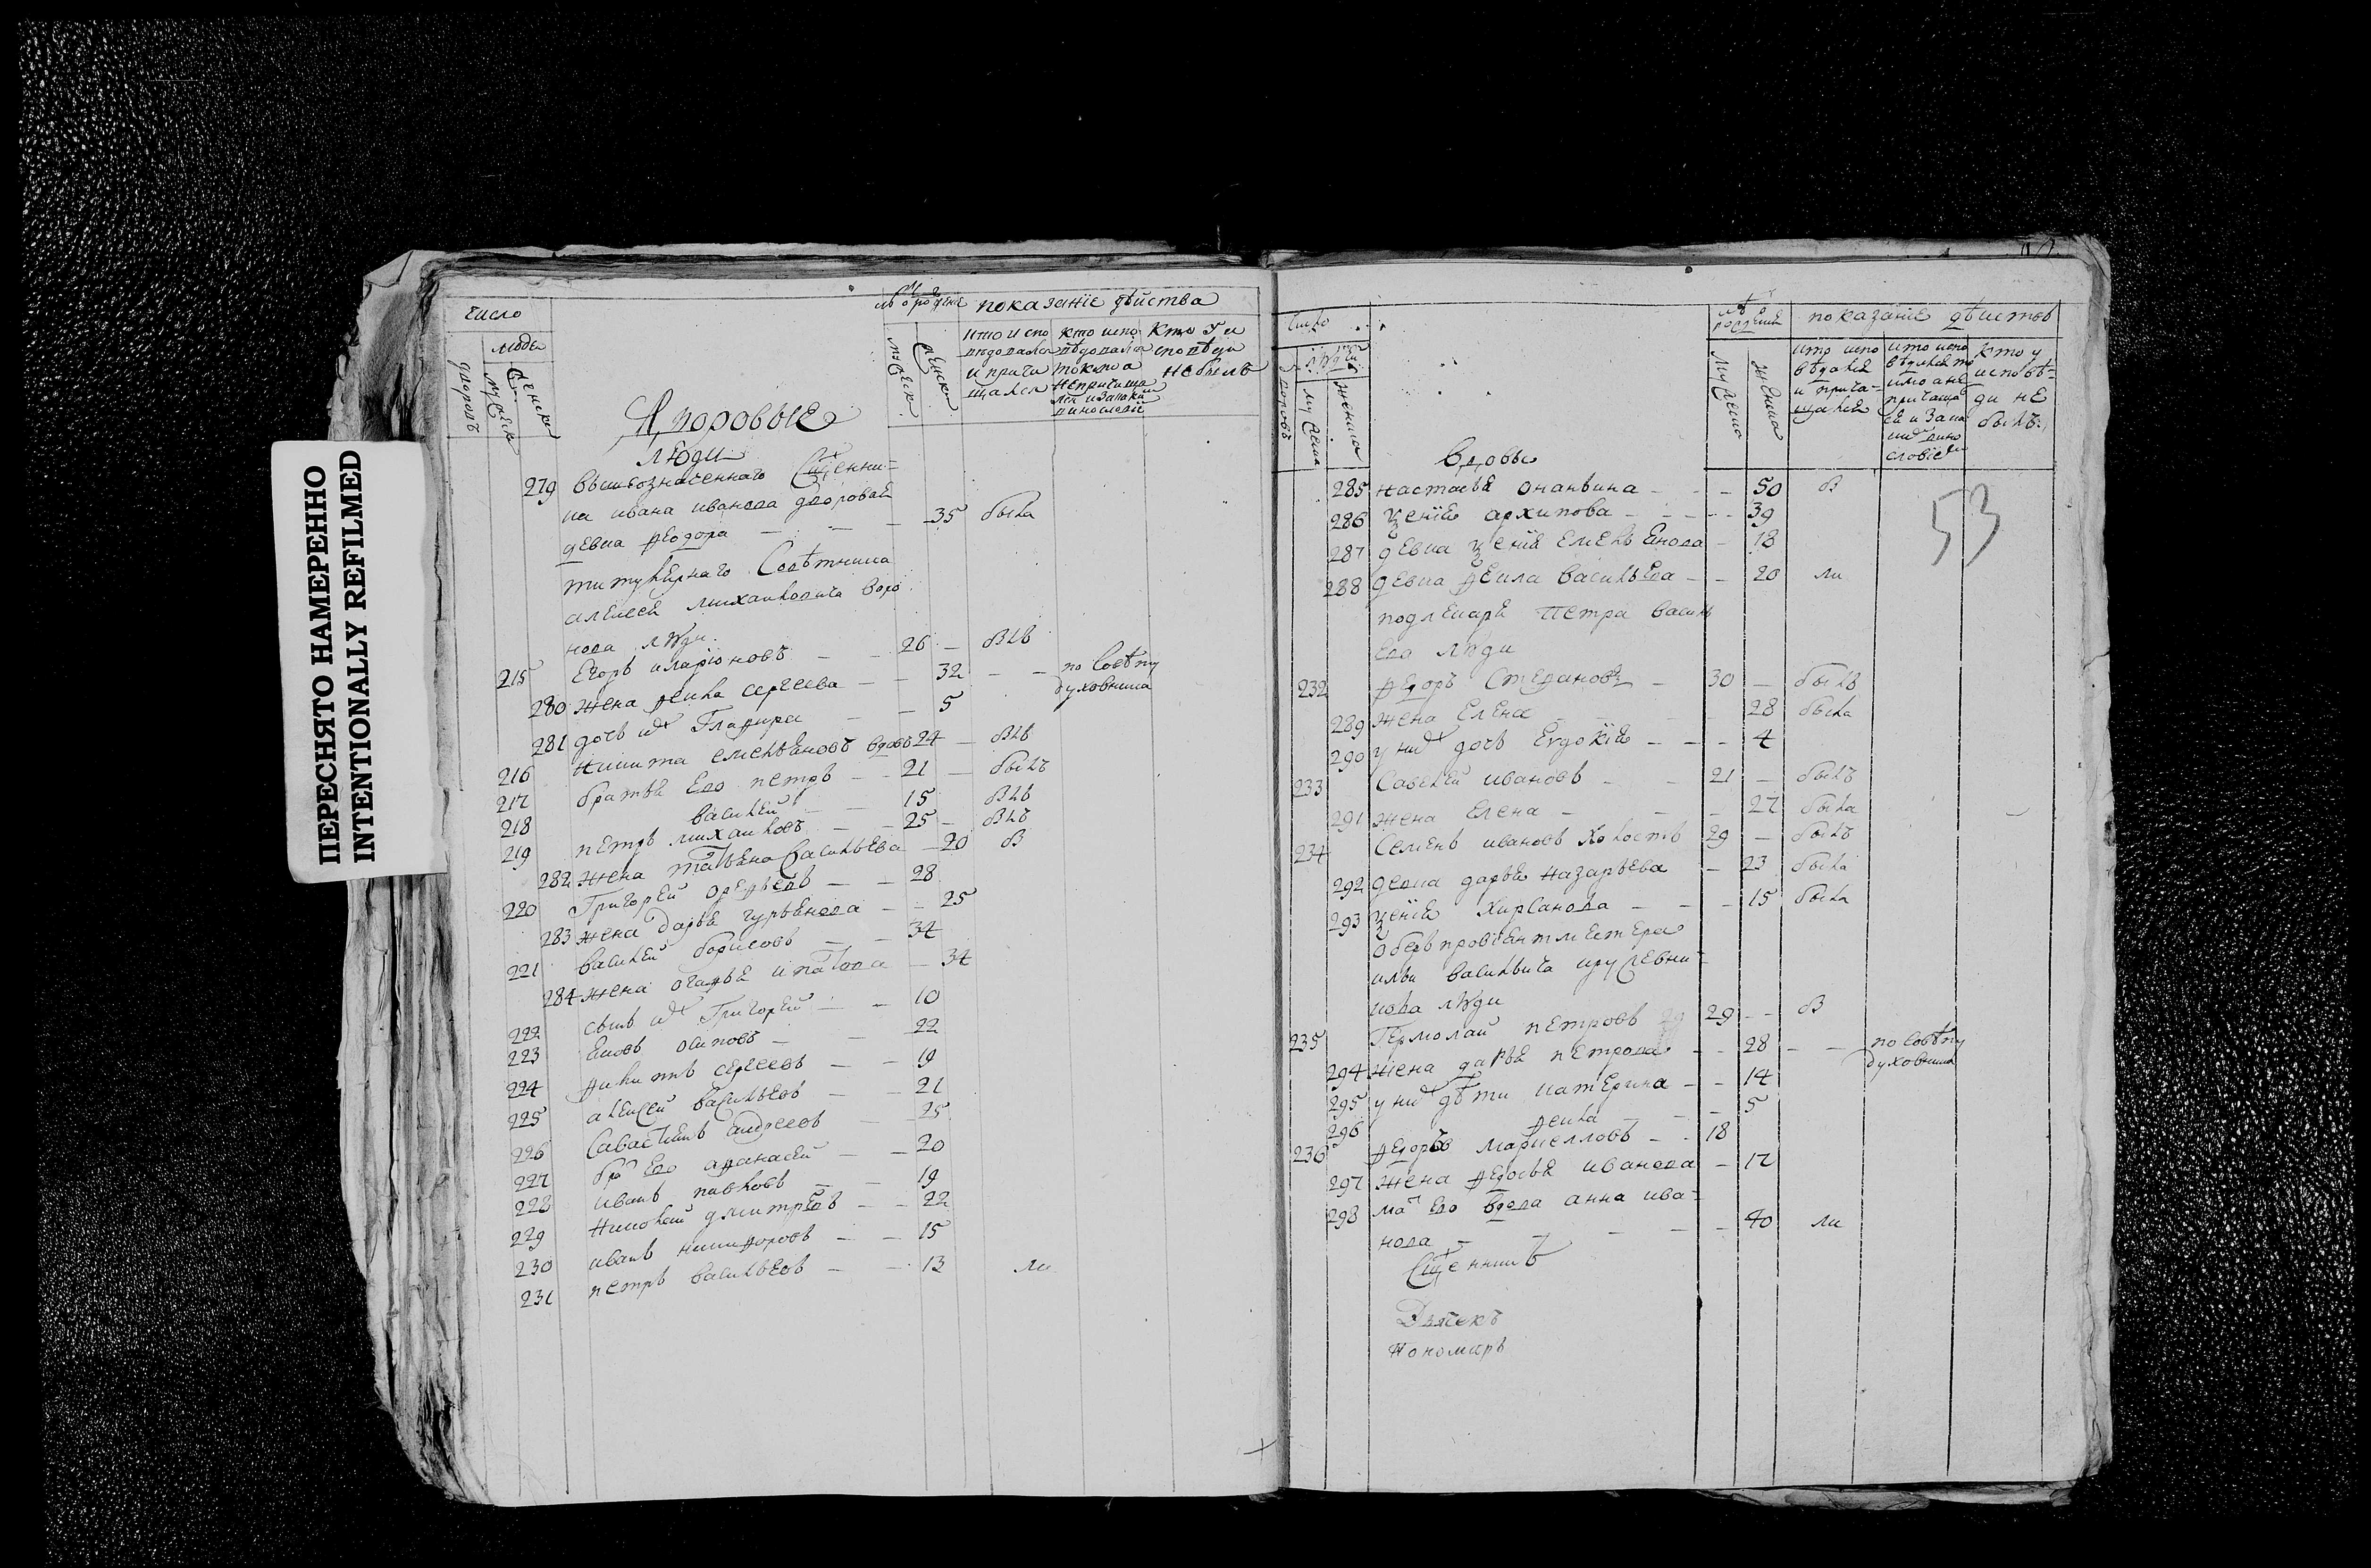 ПЕРЕСНЯТО НАМЕРЕННО
INTENTIONALLY REFILMED
число
людей
дворовъ
мужеска
женска
показаніе дѣйства
мужеск
женск
кто испо
вѣдовался
и прича
щался
кто испо
вѣдовался
токмо а
не причаща
лся и за каки
виносло віе
Кто у и
споведи
не былъ
Дворовые
люди
279 вышеозначеннаго Сщенни=
ка ивана иванова дворовая
девка ѳеодора — — — 35 была
титулярнаго Советника
алексея михаиловича воро
нова люди
215 Егоръ иларіоновъ — — 26 — влъ
280 жена ѳекла сергеева — — 32 — — по Совету
духовника
281 дочь их Глафира — — 5
216 никита емельяновъ вдовъ 24 — влъ
217 братья Ево петръ — — 21 — былъ
218 василей — — 15 влъ
219 петръ михаиловъ — — 25 — влъ
282 жена татьяна васильева — 20 в
220 Григорей — — 28
283 жена дарья гурьянова — — 25
221 василей борисовъ — — 34
284 жена агафья ипатова — 34
222 сынъ их Григорей — — 10
223 яковъ осиповъ — — 22
224 филиппъ сергеевъ — — 19
225 алексей васильевъ — — 21
226 Савастьянъ андреевъ — 25
227 бра Ево афанасей — — 20
228 иванъ павловъ — — 19
229 николай дмитрѣевъ — — 22
230 иванъ никифоровъ — — 15
231 петръ васильевъ — — 13 ли
число
людей
дворовъ
мужеска
женска
лѣ
рожденіе
показаніе дѣиствъ
мужеска
женска
кто испо
вѣдался
и прича=
щался
кто испо
вѣдался то
кмо а не
причаща
ся и за ка
ким вино
словіем
кто у
исповѣ=
ди не
былъ
вдовы
285 настасья ананьина — — — 50 в
53
286 ксенія архипова — — — 39
287 девка ксенія Емельянова — 18
288 девка ѳекла васильева — — 20 ли
подлекаря петра василь
ева люди
232 ѳедоръ Стефановъ — 30 — былъ
289 жена Елена — — 28 была
290 у них дочь Евдокія — — — 4
233 Савелей ивановъ — — 21 — былъ
291 жена Елена — — — — 27 была
234 Семенъ ивановъ холостъ 29 — былъ
292 девка дарья назарьева — 23 была
293 ксенія хирсанова — — — 15 была
оберъ провіантместера
ильи васильвича
кова люди
235 Гермолай петровъ 29 29 — — в
294 жена дарья петрова — — 28 — — по Совѣту
духовника
295 у них дѣти катерина — — 14
296 ѳекла — — — 5
236 ѳедоръ маркелловъ — — 18
297 жена ѳедосья иванова — 17
298 ма Ево вдова анна ива=
нова — — — — 40 ли
Сщенникъ
Дьячекъ
Пономарь